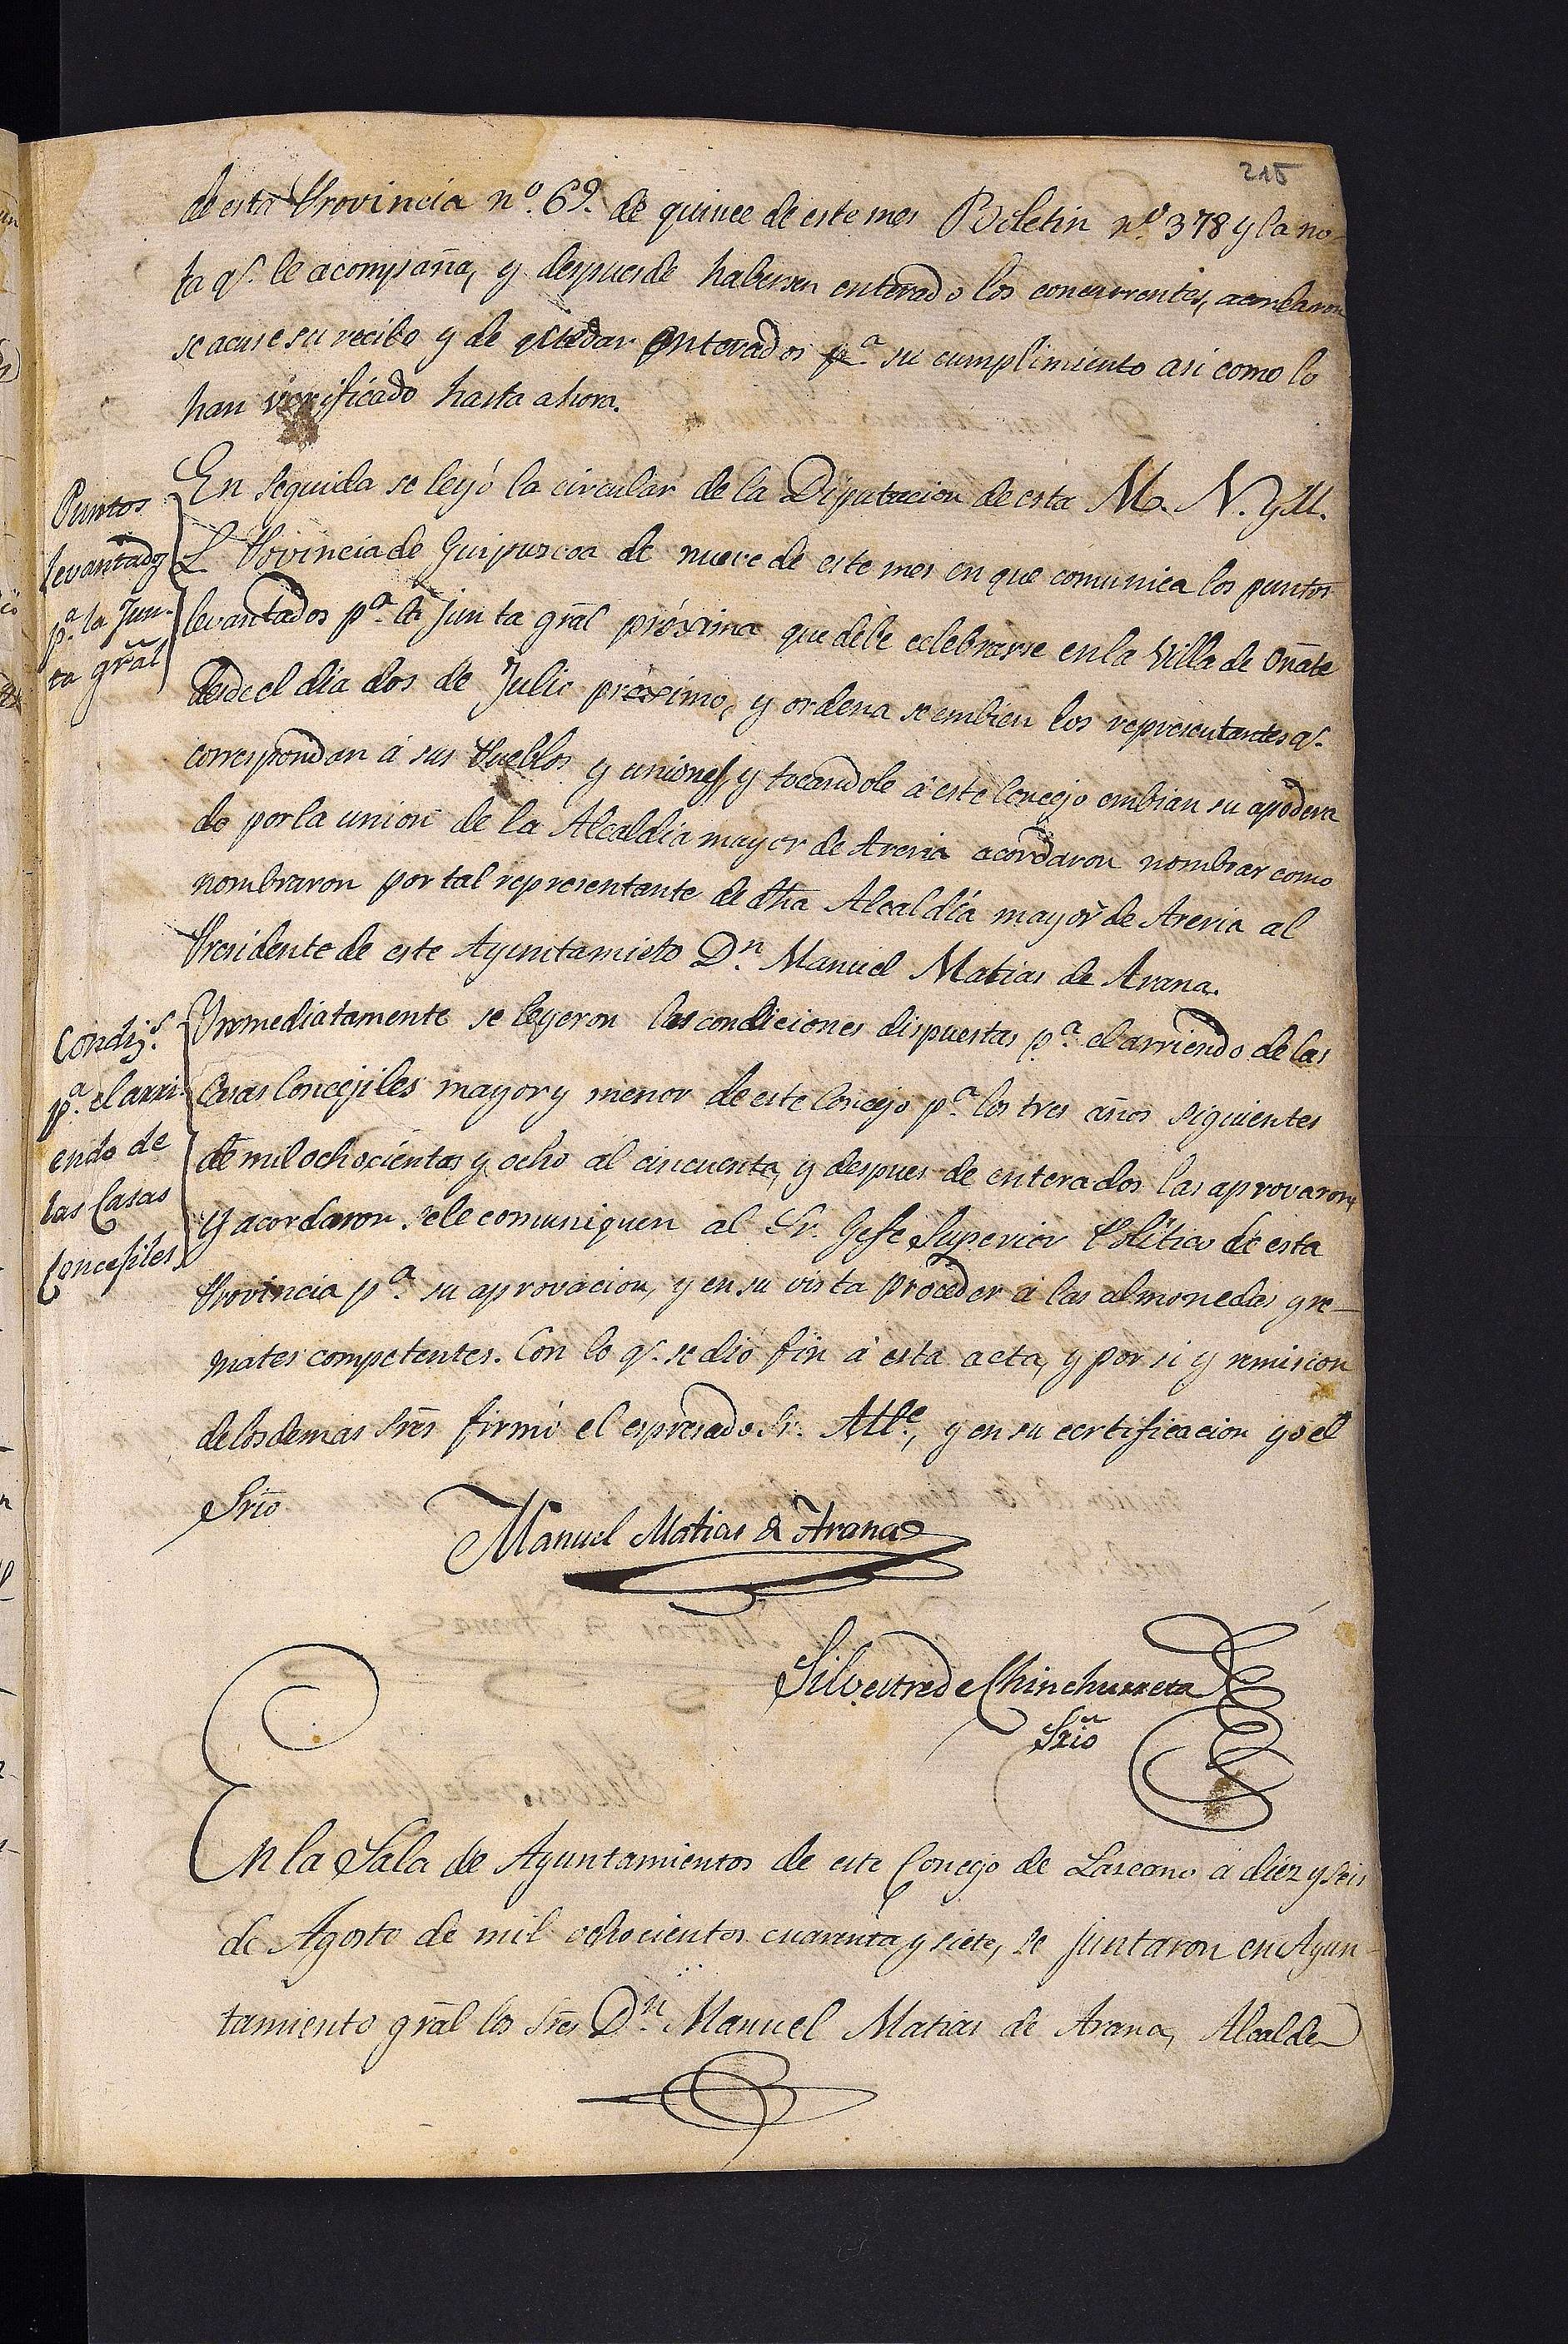 215
de esta Provincia nº. 69. de quince de este mes Boletin nº 378 y la no-
ta qe. le acompaña, y despues de habersen enterado los concurrentes, acordaron
se acuse su recibo y de quedar enterados pa. su cumplimiento asi como lo
han verificado hasta ahora.
Puntos
levantados
pa. la Jun-
ta gral
En seguida se leyó la circular de la Diputacion de esta M. N. y M.
L. Provincia de Guipuscoa de nueve de este mes en que comunica los puntos
levantados pa. la junta gral próxima que debe celebrarse en la Villa de Oñate
desde el dia dos de Julio proximo, y ordena se embien los representantes qe.
correspondan á sus Pueblos y uniones, y tocandole á este Concejo embian su apodera
do por la union de la Alcaldia mayor de Areria acordaron nombrar como
nombraron por tal representante de dha Alcaldía mayor de Areria al
Presidente de este Ayuntamieto Dn. Manuel Matias de Arana.
Condis.
pa. el arri-
endo de
las Casas
Concejiles
Ynmediatamente se leyeron las condiciones dispuestas pa. el arriendo de las
Casas Concejiles mayor y menor de este Concejo pa. los tres años siguientes
de mil ochocientos y ocho al cincuenta, y despues de enterados las aprovaron,
y acordaron se le comuniquen al Sr. Gefe Superior Político de esta
Provincia pa. su aprovacion, y en su vista proceder á las almonedas y re-
mates competentes. Con lo qe. se dió fin á esta acta, y por si y remision
de los demas Sres firmó el espresado Sr. Alle., y en su certificacion yo el
Srio
Manuel Matias de Arana
Silvestre de Chinchurreta
Srio
En la Sala de Ayuntamientos de este Concejo de Lascano á diez y seis
de Agosto de mil ochocientos cuarenta y siete, se juntaron en Ayun-
tamiento gral los Sres Dn. Manuel Matias de Arana, Alcalde